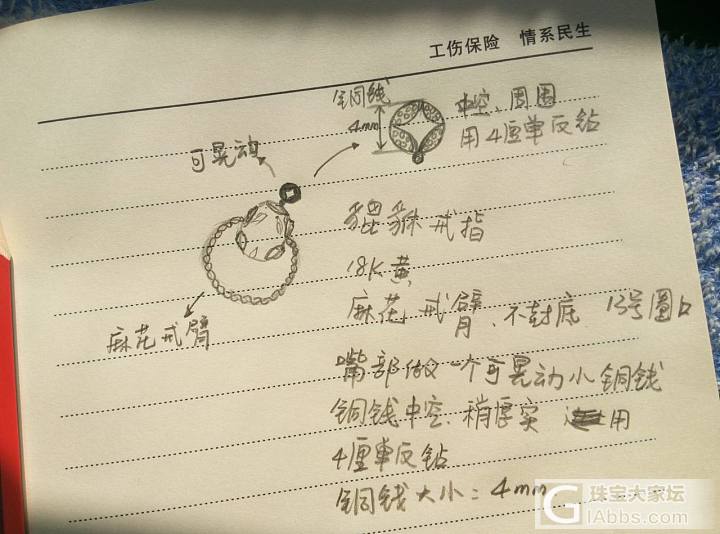 工伤保险 情系民生
铜钱
4mm
中空、周围
用4厘单反钻
可晃动
貔貅戒指
18K黄
麻花戒臂、不封底 13号圈口
麻花戒臂
嘴部做一个可晃动小铜钱
铜钱中空、稍厚实 用
4厘单反钻
铜钱大小：4mm
珠宝大家坛
GIAbbs.com